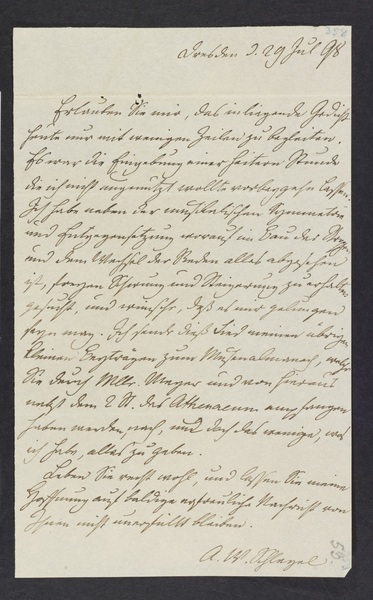 258
Dresden d. 29 Jul 98
Erlauben Sie mir, das inliegende Gedicht
heute nur mit wenigen Zeilen zu begleiten.
Es war die Eingebung einer heitern Stunde
die ich nicht ungenützt wollte vorbeygehn lassen.
Ich habe neben der musikalischen Symmetrie
und Entgegensetzung worauf im Bau der
und dem Wechsel der Reden alles abgesehen
ist, Schwung und Steigerung zu erhalten
gesucht, und wünsche, daß es mir gelungen
seyn mag. Ich sende dieß Lied meinen übrigen
kleinen Beyträgen zum Musenalmanach, welche
Sie durch Mlle. Meyer und von hier aus
nebst dem 2 St. des Athenaeum empfangen
haben werden, nach, und doch das wenige, was
ich habe, alles zu geben.
Leben Sie recht wohl, und lassen Sie meine
Hoffnung auf baldige erfreuliche Nachricht von
Ihnen nicht unerfüllt bleiben.
A. W. Schlegel